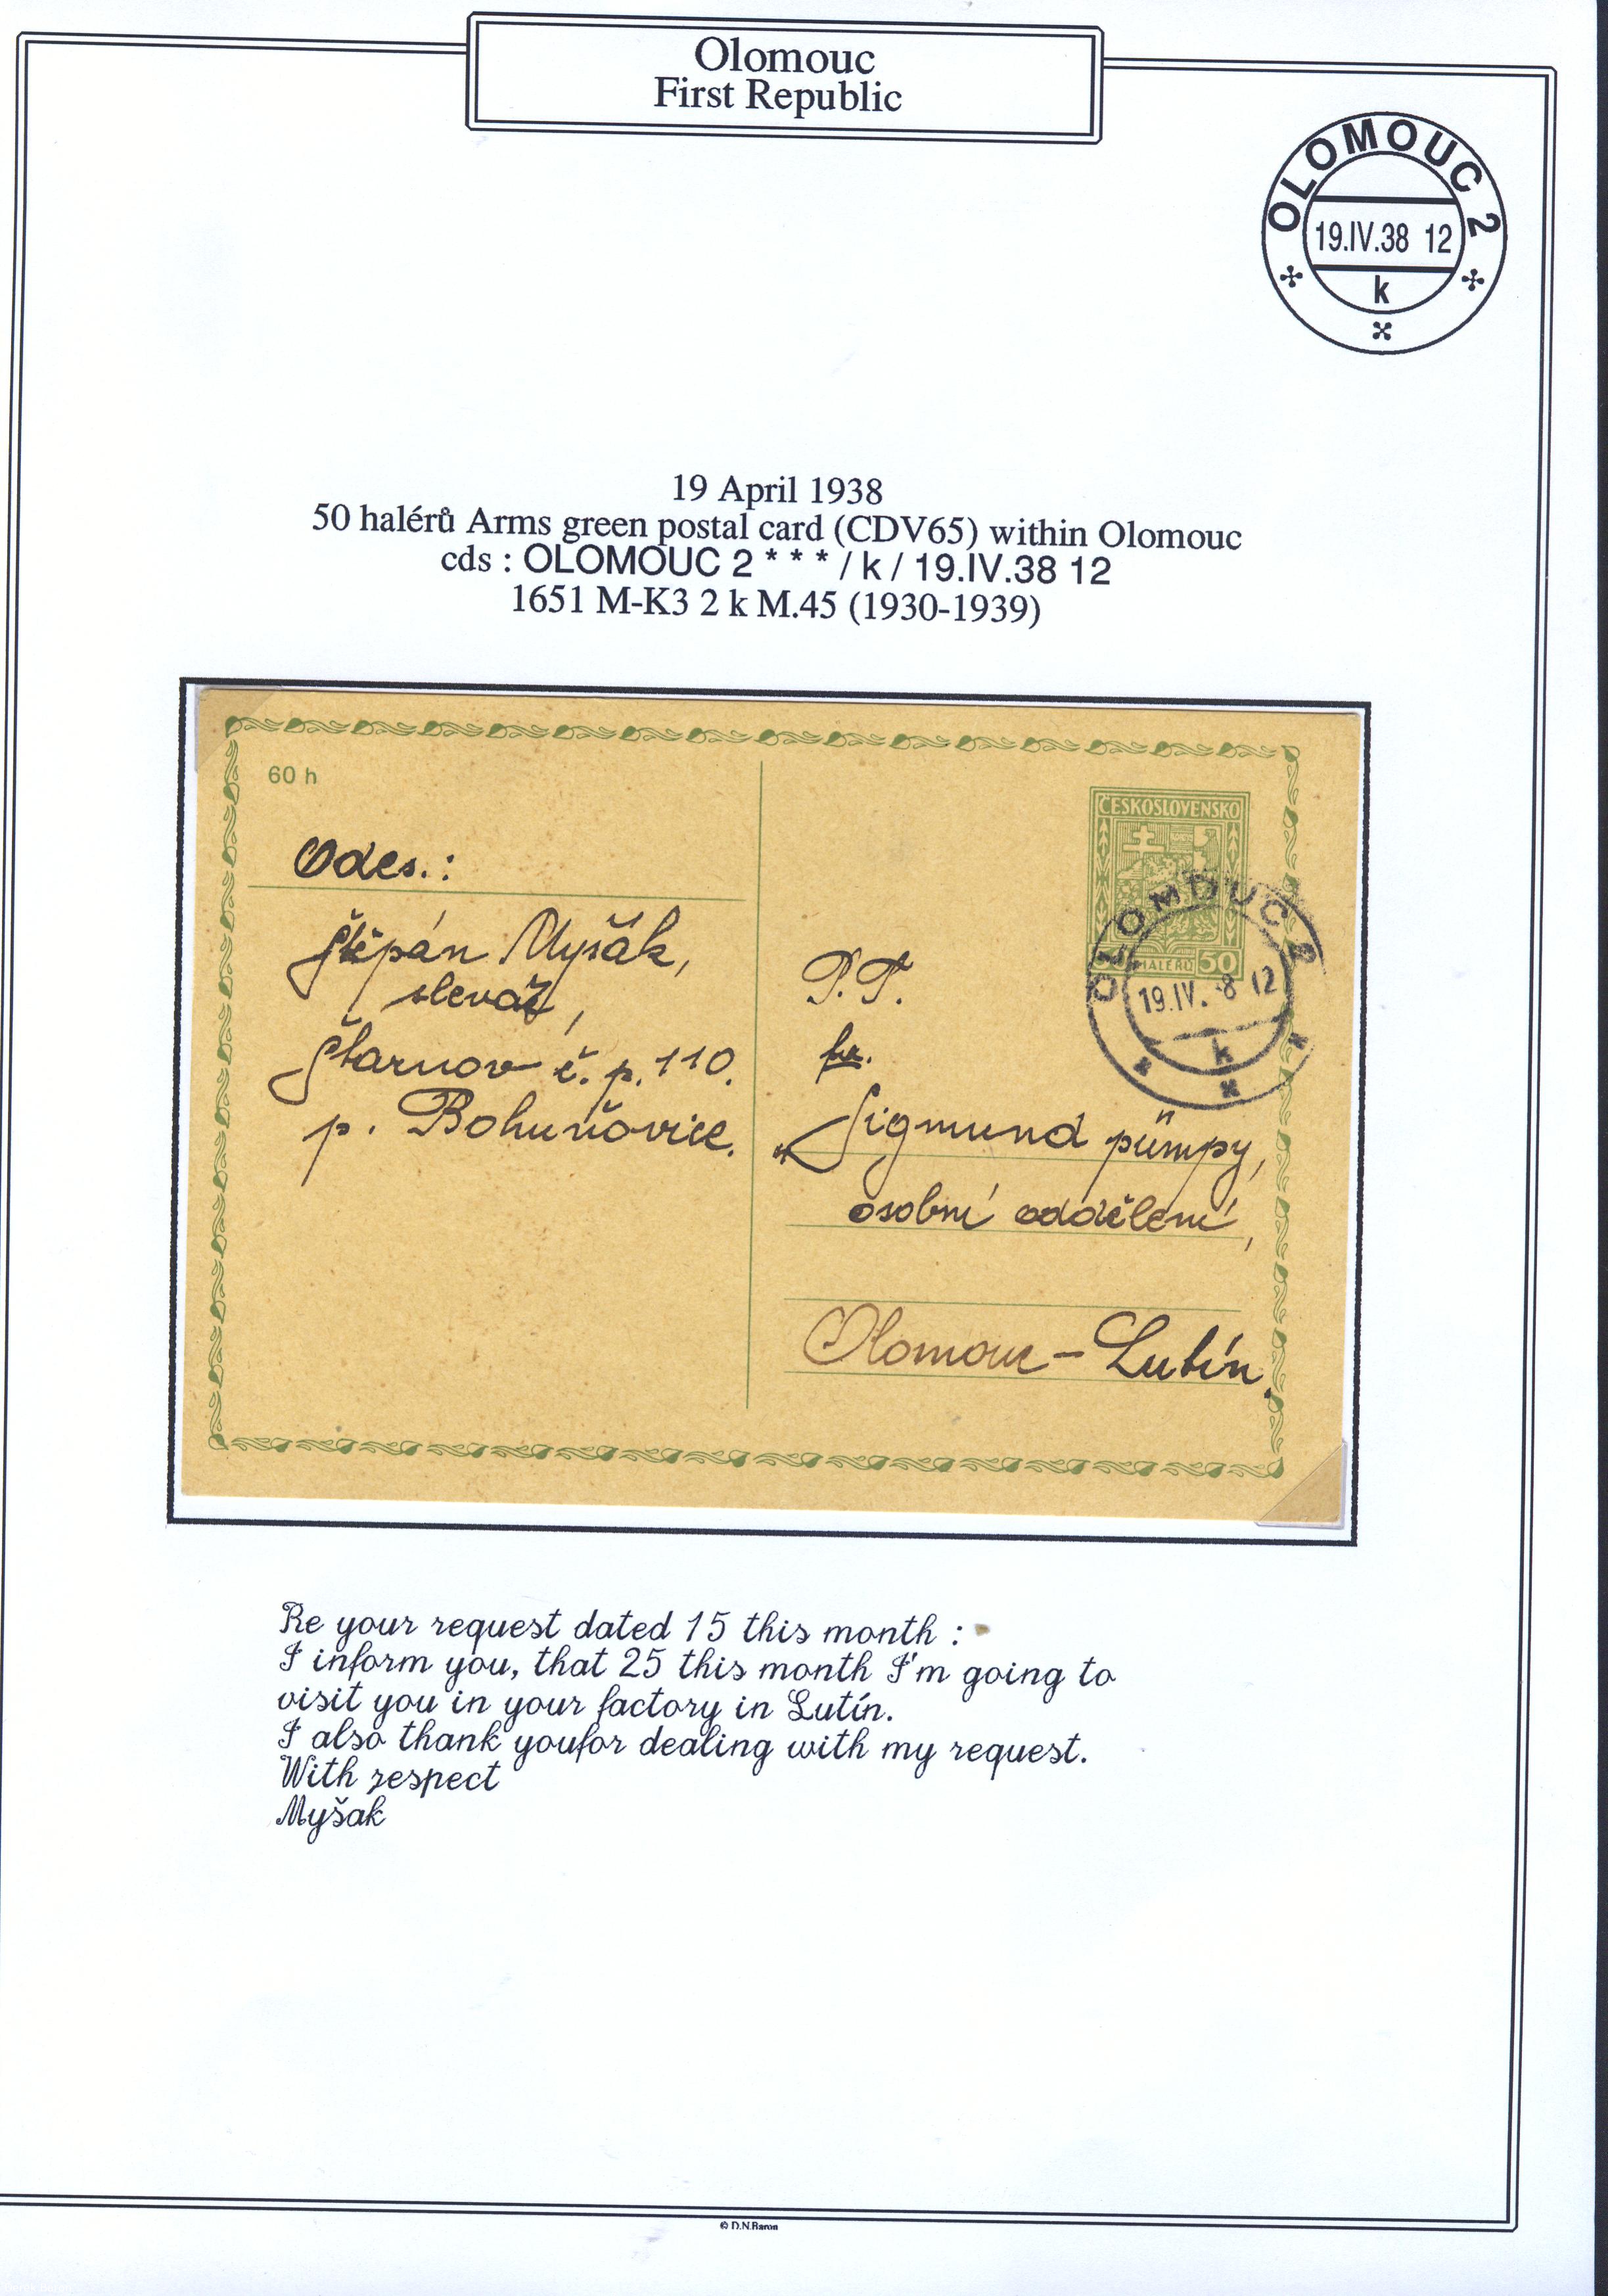 Olomouc
First Republic
OLOMOUC 2
19.IV.38 12
k
19 April 1938
50 halérů Arms green postal card (CDV65) within Olomouc
cds : OLOMOUC 2 * * * / k / 19.IV.38 12
1651 M-K3 2 k M.45 (1930-1939)
60 h
ČESKOSLOVENSKO
HALÉŘŮ 50
OLOMOUC 2
19.IV. 8 12
k
Odes.:
Štěpán Myšák,
slevač,
Štarnov č. p. 110.
p. Bohuňovice.
P.T.
fa.
„Sigmund" pumpy,
osobní oddělení,
Olomouc - Lutín.
Re your request dated 15 this month :
I inform you, that 25 this month I'm going to
visit you in your factory in Lutín.
I also thank youfor dealing with my request.
With respect
Myšak
© D.N.Baron